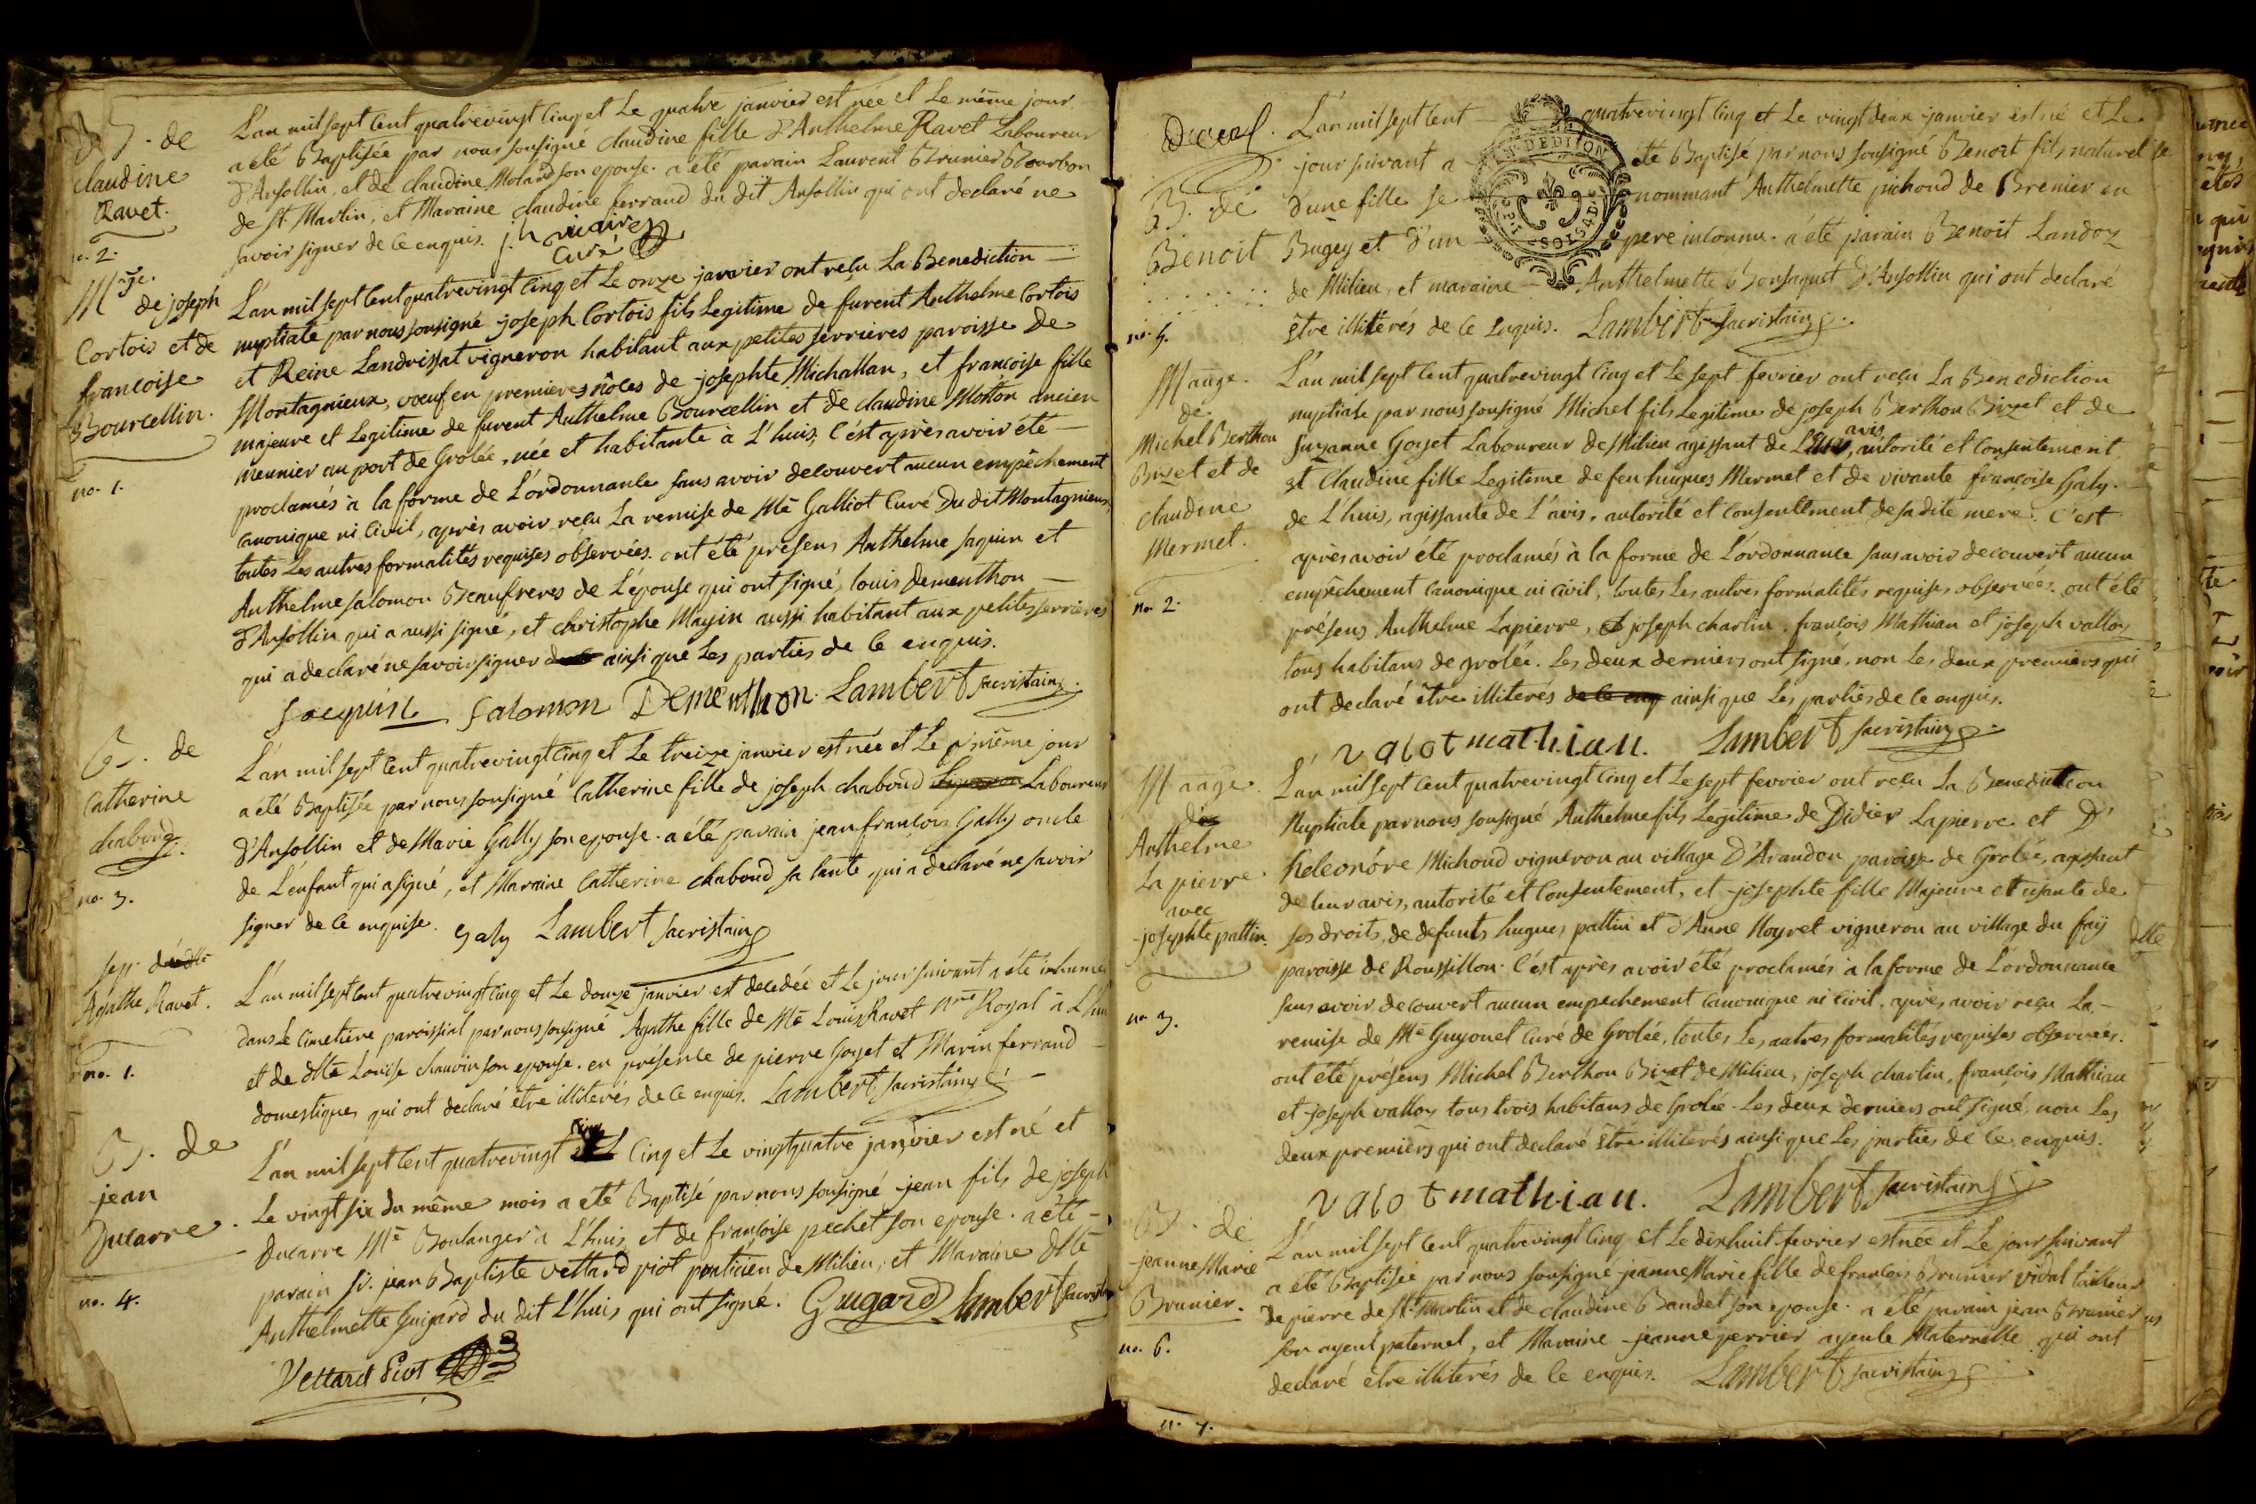 B. de
claudine
Ravet.
n. 2.
L'an mil sept cent quatrevingt cinq et Le quatre janvier est née et Le même jour
a été Baptisée par nous sousigné claudine fille d'Anthelme Ravet Laboureur
d'Ansollin, et de claudine Molard son epouse. a été parain Laurent Brunier Bourbon
de St. Martin, et Maraine claudine ferrand du dit Ansollin qui ont declaré ne
savoir signer de ce enquis.
curé
Mage.
de joseph
Cortois et de
francoise
Bourcellin.
no. 1.
L'an mil sept cent quatrevingt cinq et Le onze janvier ont reçu La Benediction
nuptiale par nous sousigné joseph Cortois fils Legitime de furent Anthelme Cortois
et Reine Landrissat vigneron habitant aux petites serrieres paroisse de
Montagnieux, vœuf en premieres nôces de josephte Michallan, et francoise fille
majeure et Legitime de furent Anthelme Bourcellin et de claudine Motton ancien
meunier au port de Grolée, née et habitante à L'huis, C'est après avoir été
proclamés à la forme de L'ordonnance sans avoir decouvert aucun empêchement
canonique ni Civil, après avoir reçu La remise de Me Galliot Curé Du dit Montagnieux,
toutes Les autres formalités requises observées. ont été présens Anthelme jaquin et
Anthelme Salomon Beaufreres de L'épouse qui ont signé, Louis Dementhon
d'Ansollin qui a aussi signé, et christophe Maysin aussi habitant aux petites serrieres
qui a declaré ne savoir signer ainsi que Les parties de ce enquis.
jacquin salomon Dementhon. Lambert sacristain
B. de
Catherine
chaboud.
no. 3.
L'an mil sept cent quatrevingt cinq et Le treize janvier est née et Le même jour
a été Baptisée par nous sousigné Catherine fille de joseph chaboud Laboureur
d'Ansollin et de Marie Gally son epouse. a été parain jean francois Gally oncle
de L'enfant qui a signé, et Maraine Catherine chaboud sa tante qui a declaré ne savoir
signer de ce enquise. Galy Lambert sacristain
sep.
Agathe Ravet.
no. 1.
L'an mil sept cent quatrevingt cinq et Le douze janvier est decedée et Le jour suivant a été inhumée
dans Le cimetiere paroissial par nous sousigné Agathe fille de Me Louis Ravet Nre Royal à L'huis
et de dlle Louise chauvin son epouse. en présence de pierre Goyet et Marin ferrand
domestiques qui ont declaré être illiterés de ce enquis. Lambert sacristain
B. de
jean
Ducarre.
no. 4.
L'an mil sept cent quatrevingt cinq et Le vingtquatre janvier est né et
Le vingt six du même mois a été Baptisé par nous sousigné jean fils de joseph
Ducarre Me Boulanger à L'huis, et de françoise pechet son epouse. a été
parain sr. jean Baptiste vettard piot praticien de Milieu, et Maraine dlle
Anthelmette Guigard du dit L'huis qui ont signé. Guigard Lambert sacristain
Vettard Piot
B. de
Benoit
no. 5.
L'an mil sept cent quatrevingt cinq et Le vingt deux janvier est né et Le
jour suivant a été Baptisé par nous sousigné Benoit fils naturel
d'une fille se nommant Anthelmette pichoud de Brenier en
Bugey et d'un pere inconnu. a été parain Benoit Landoz
de Milieu, et maraine Anthelmette Bonsaquet d'Ansollin qui ont declaré
être illiterés de ce enquis. Lambert sacristain
Mariage.
de
Michel Berthon
Bizet et de
claudine
Mermet.
no. 2.
L'an mil sept cent quatrevingt cinq et Le sept fevrier ont reçu La Benediction
nuptiale par nous sousigné Michel fils Legitime de joseph Berthon Bizet et de
suzanne Goyet Laboureur de Milieu agissant de Leur avis, autorité et consentement
et Claudine fille Legitime de feu hugues Mermet et de vivante françoise Galy.
de L'huis, agissante de L'avis, autorité et consentement de sa dite mere. C'est
après avoir été proclamés à la forme de L'ordonnance sans avoir decouvert aucun
empêchement canonique ni civil, toutes Les autres formalités requises observées. ont été
présens Anthelme Lapierre, joseph charlin, françois Mathian et joseph vallot
tous habitans de Grolée. Les deux derniers ont signé, non Les deux premiers qui
ont declaré être illiterés ainsi que Les parties de ce enquis.
valot mathian. Lambert sacristain
Mariage
Anthelme
Lapierre
avec
josephte pattin.
no. 3.
L'an mil sept cent quatrevingt cinq et Le sept fevrier ont reçu La Benediction
Nuptiale par nous sousigné Anthelme fils Legitime de Didier Lapierre et D'
Heleonóre Michoud vigneron au village D'Arandon paroisse de Grolée, agissant
de leur avis, autorité et consentement, et josephte fille Majeure et usante de
ses droits, de defunts hugues pattin et d'Anne Moyret vigneron au village du fay
paroisse de Roussillon. C'est après avoir été proclamés à la forme de L'ordonnance
sans avoir decouvert aucun empechement canonique ni civil, après avoir reçu La
remise de Me Guyonet curé de Grolée, toutes Les autres formalités requises observées.
ont été présens Michel Berthon Bizet de Milieu, joseph charlin, françois Mathian
et joseph vallot tous trois habitans de Grolée. Les deux derniers ont signé, non Les
deux premiers qui ont declaré être illiterés ainsi que Les parties de ce enquis.
valot mathian. Lambert sacristain
B. de
jeanne Marie
Brunier.
no. 6.
L'an mil sept cent quatrevingt cinq et Le dixhuit fevrier est née et Le jour suivant
a été Baptisée par nous sousigné jeanne Marie fille de francois Brunier vidal tailleur
De pierre de St. Martin et de claudine Baudet son epouse. a été parain jean Brunier
son ayeul paternel, et Maraine jeanne perrier ayeule Maternelle qui ont
declaré être illiterés de ce enquis. Lambert sacristain
n. 7.